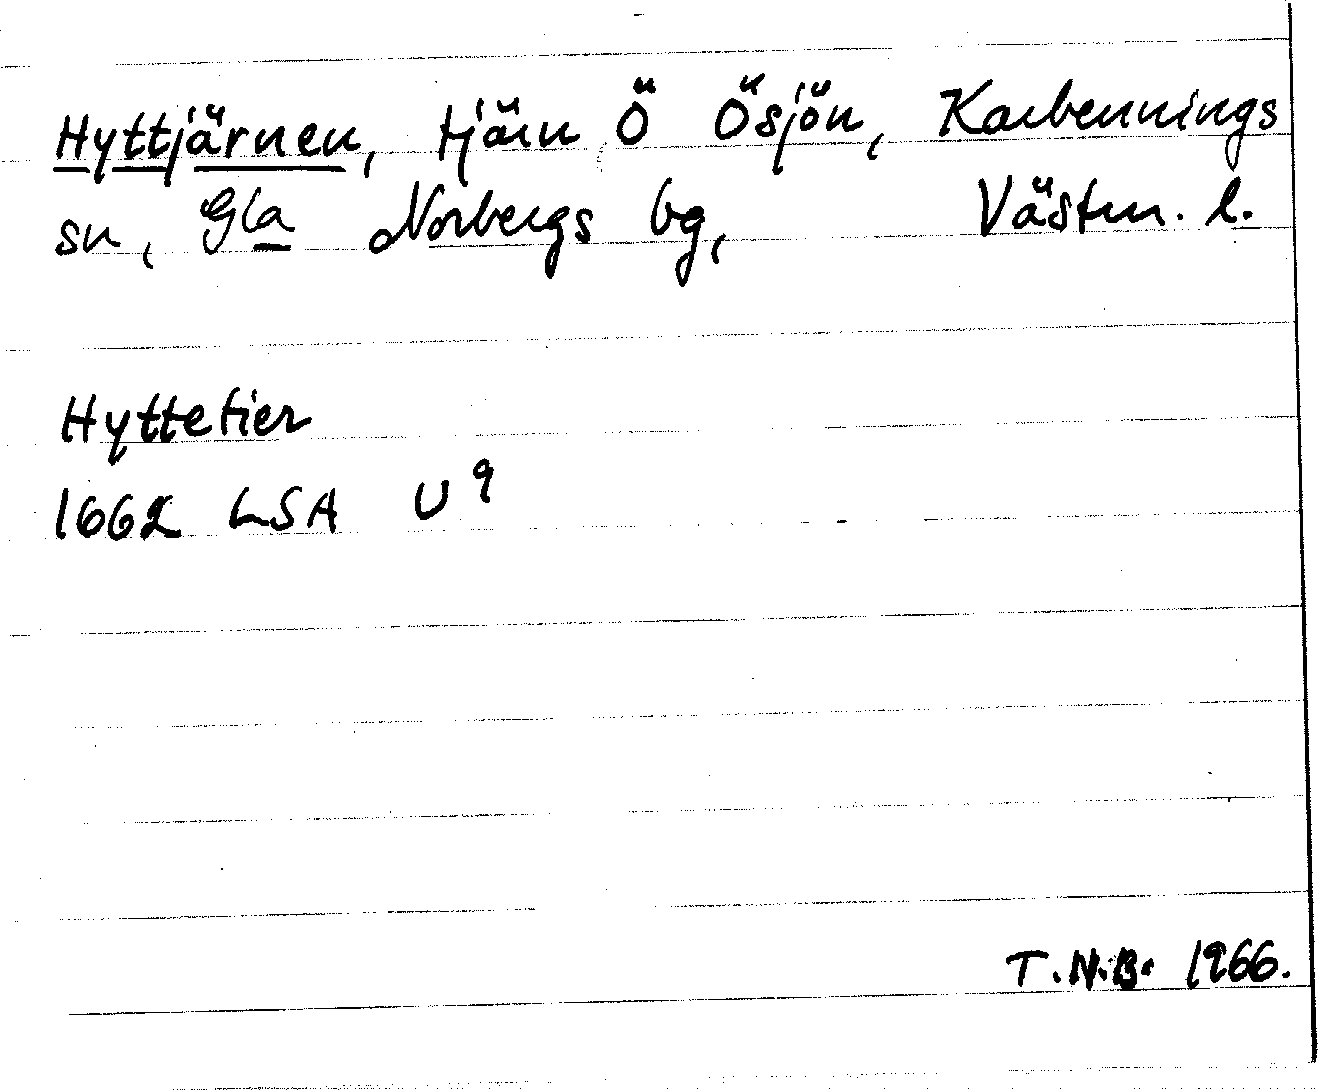 Hyttjärnen, tjärn Ö Ösjön, Karbennings
sn, Gla Norbergs bg, Västm. l.
Hyttetier
1662 LSA U 9
T.N.B. 1966.